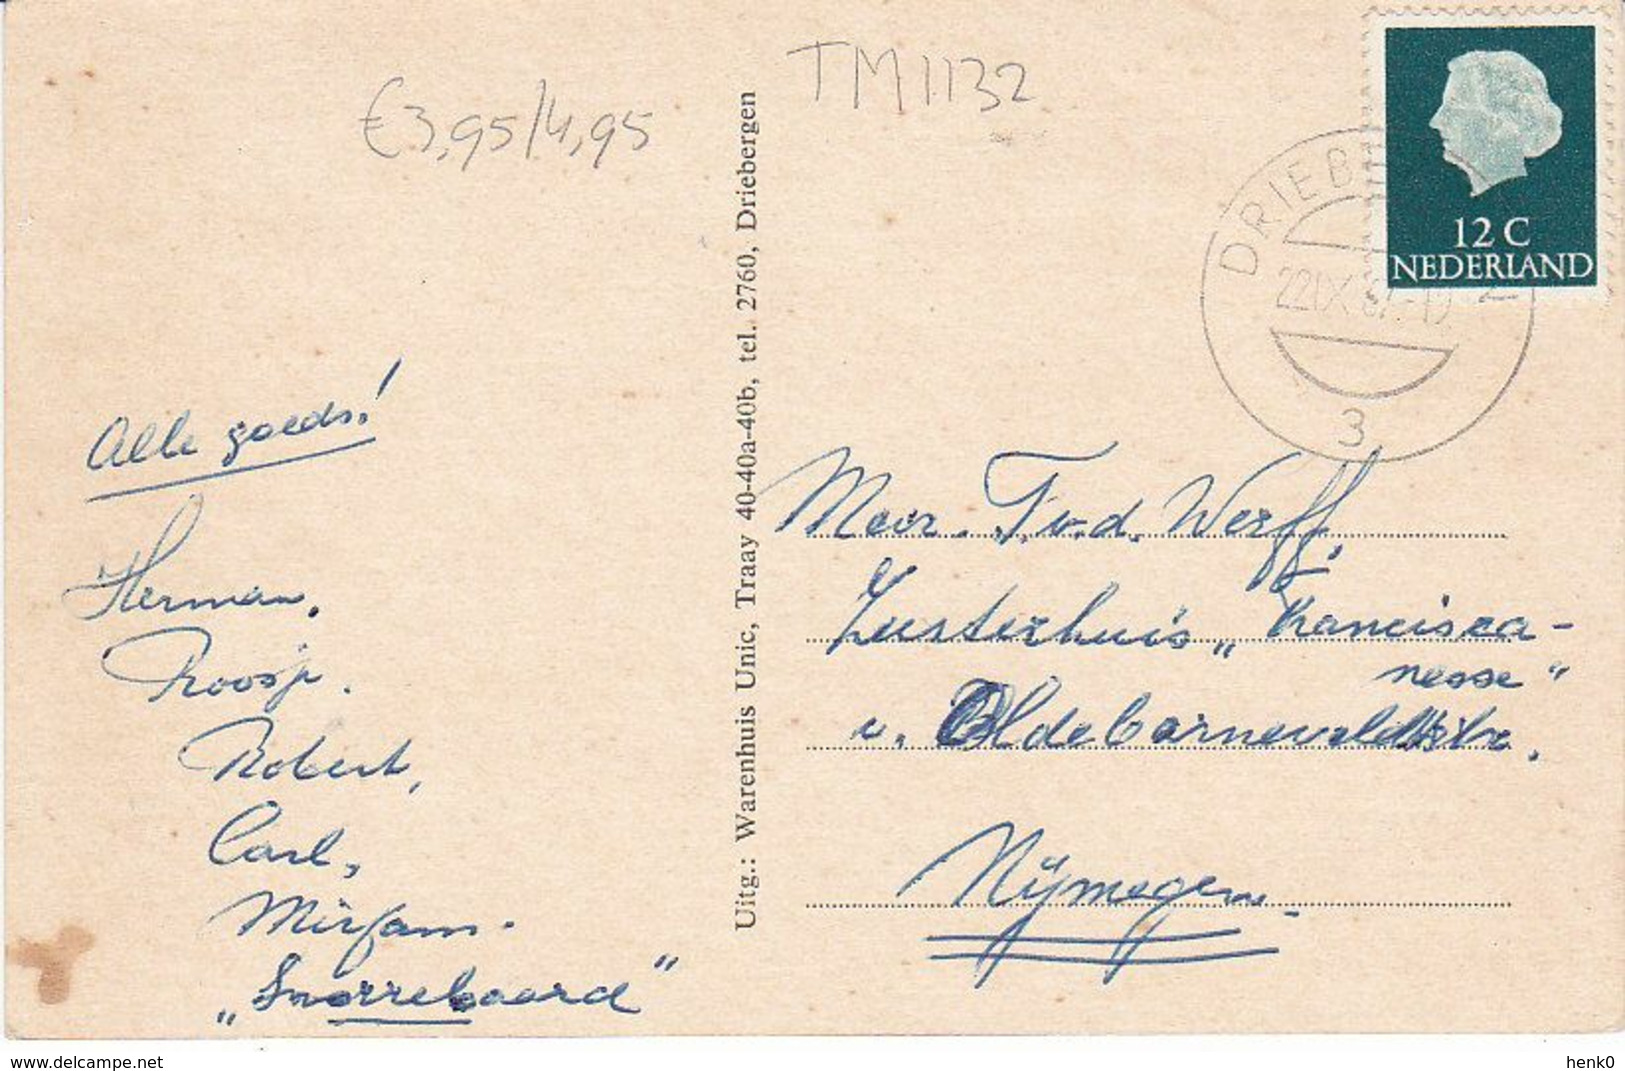 €3,95/4,95
TM1132
12 C
NEDERLAND
DRIEB
22 IX
3
Alle goeds!
Herman,
Roosje.
Robert,
Carl,
Mirjam.
„Snorrebaard"
Uitg.: Warenhuis Unic, Traay 40-40a-40b, tel. 2760, Driebergen
Mevr. T. v.d. Werff,
Zusterhuis „Francisca-
nesse"
v. Oldebarneveldtstr.
Nijmegen.
delcampe.net
henk0